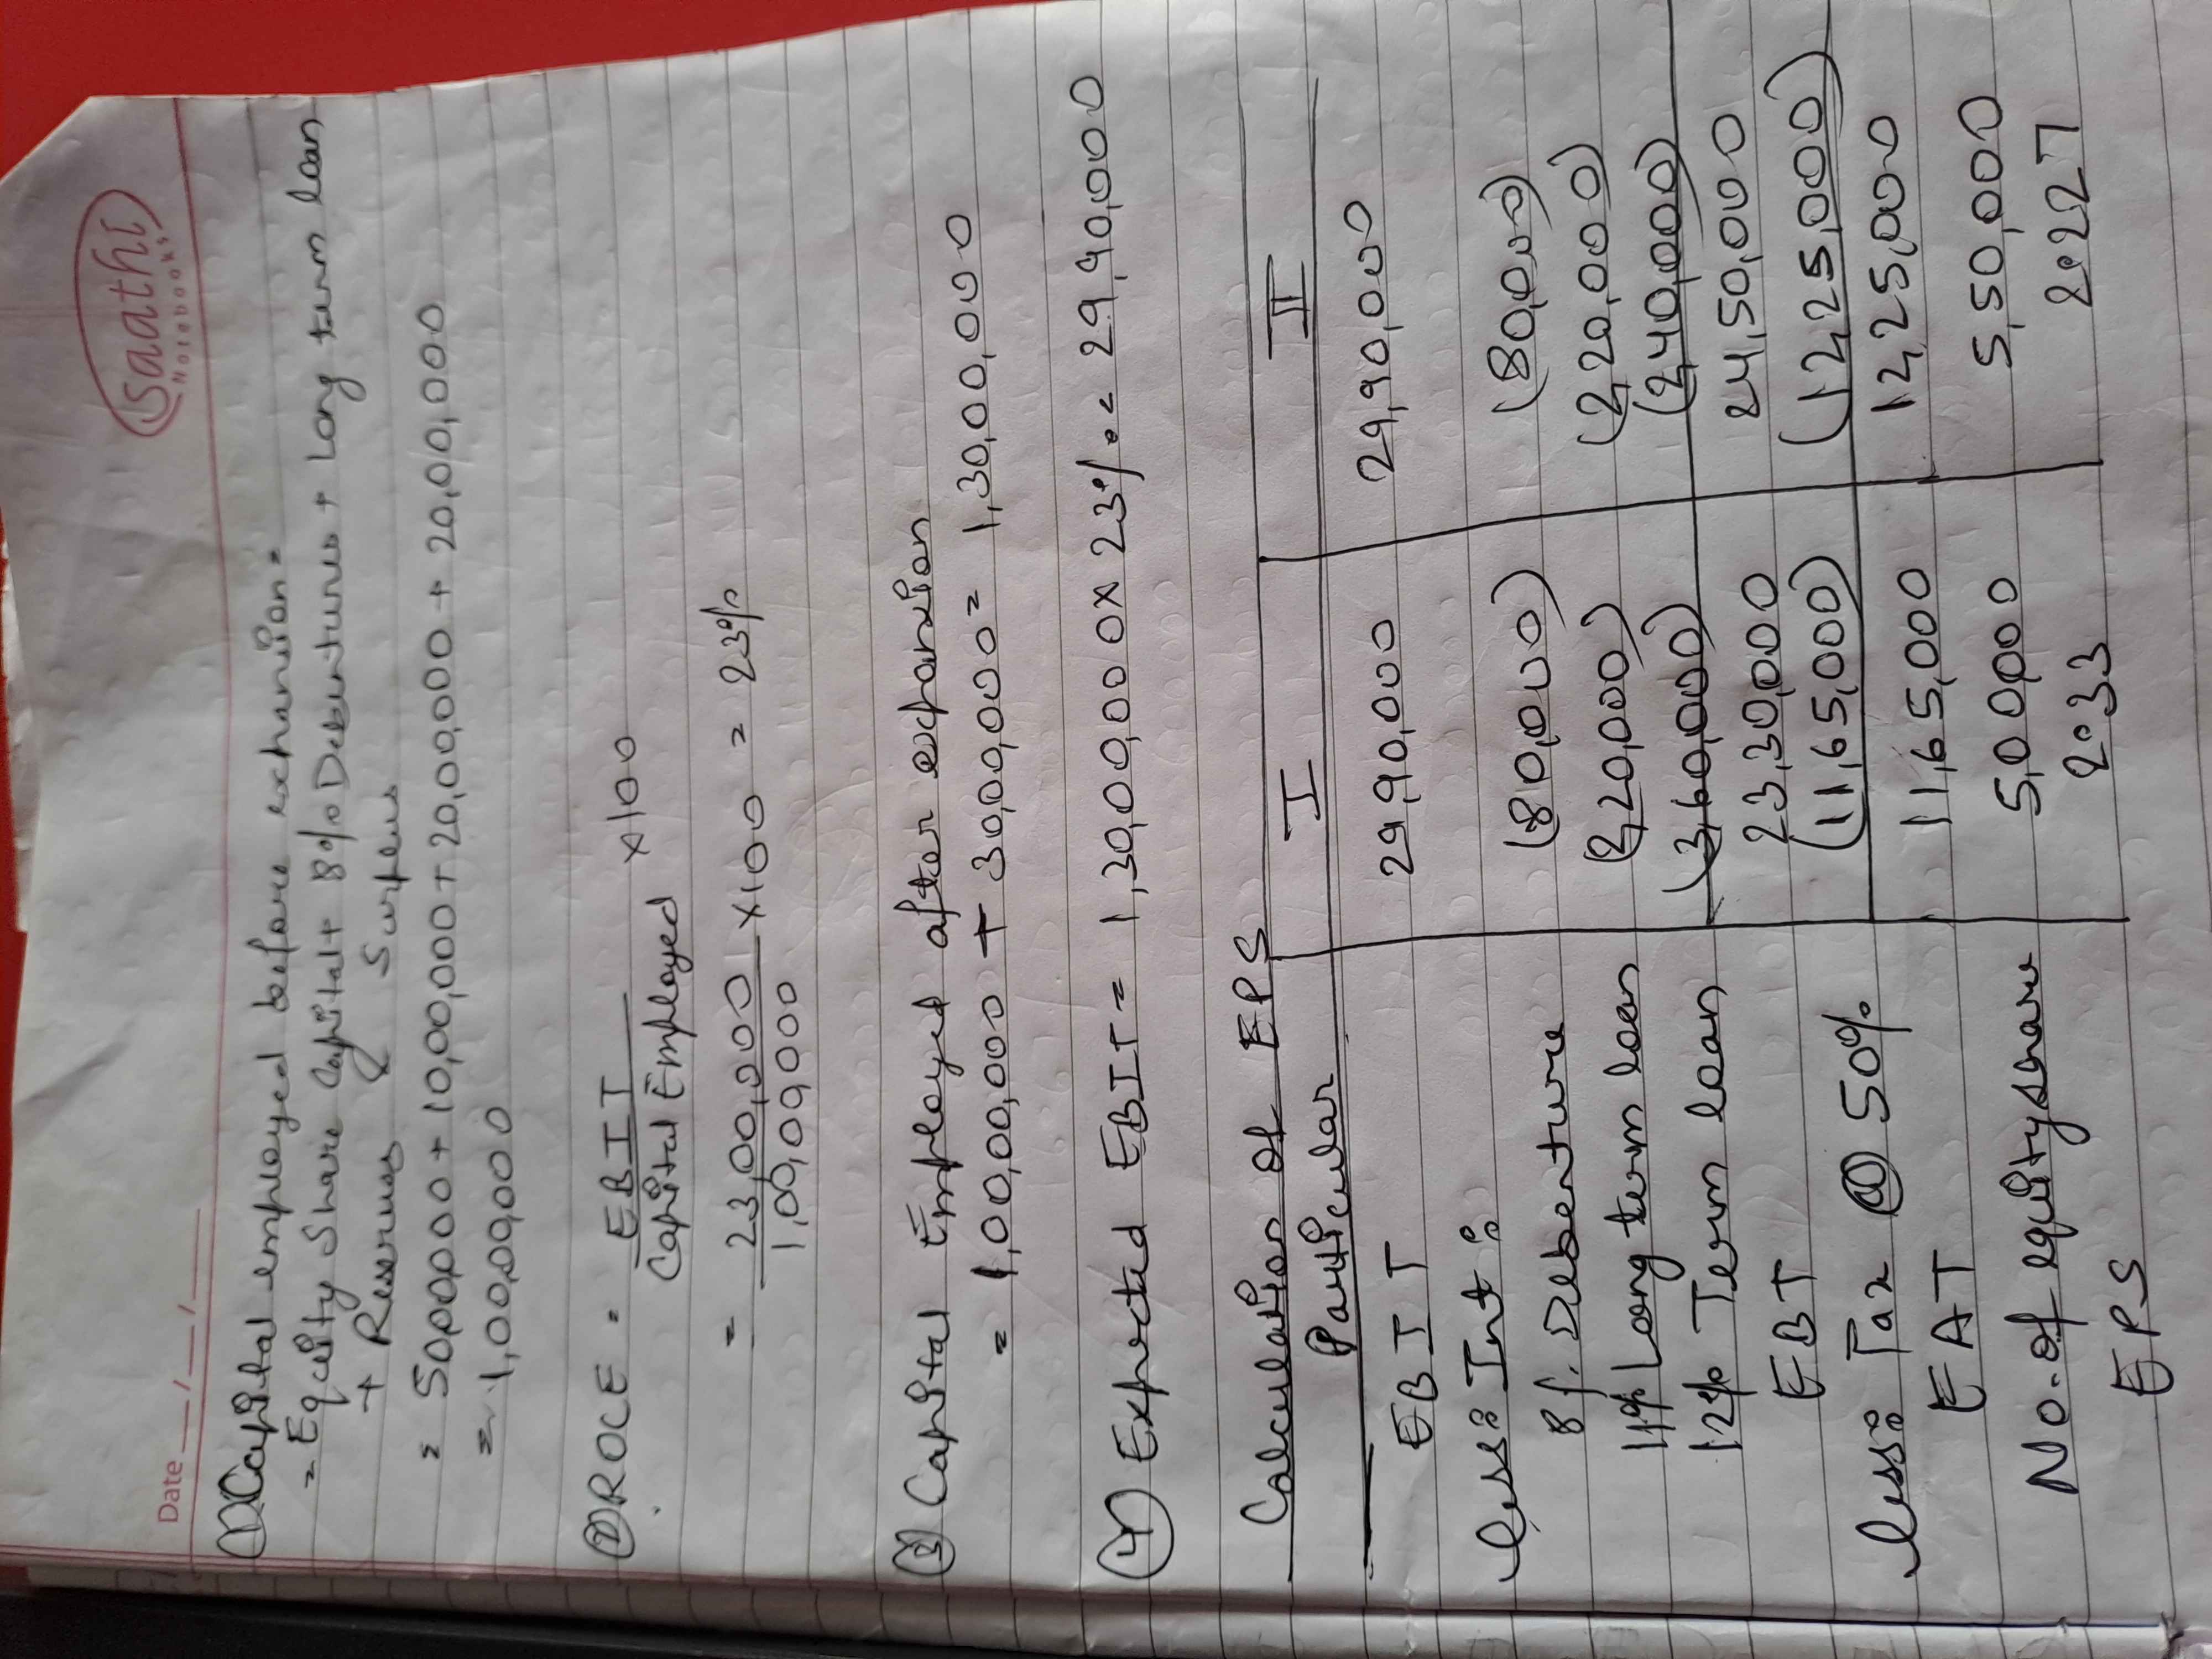 Saathi
Notebooks
Date
① Capital employed before exchansion =
= Equity Share Capital + 8% Debentures + Long term loan
+ Reserves & Surplus
= 50,00,000 + 10,00,000 + 20,00,000 + 20,00,000
= 1,00,00,000
② ROCE = EBIT / Capital Employed × 100
= 23,00,000 / 1,00,00,000 × 100 = 23%
③ Capital Employed after expansion
= 1,00,00,000 + 30,00,000 = 1,30,00,000
④ Expected EBIT = 1,30,00,000 × 23% = 29,90,000
Calculation of EPS
Particular I II
EBIT 29,90,000 29,90,000
Less: Int:
8%. Debenture (80,000) (80,000)
11% Long term loan (2,20,000) (2,20,000)
12% Term loan (3,60,000) (2,40,000)
EBT 23,30,000 24,50,000
Less: Tax @ 50% (11,65,000) (12,25,000)
EAT 11,65,000 12,25,000
No. of equity share 5,00,000 5,50,000
EPS 2.33 2.227